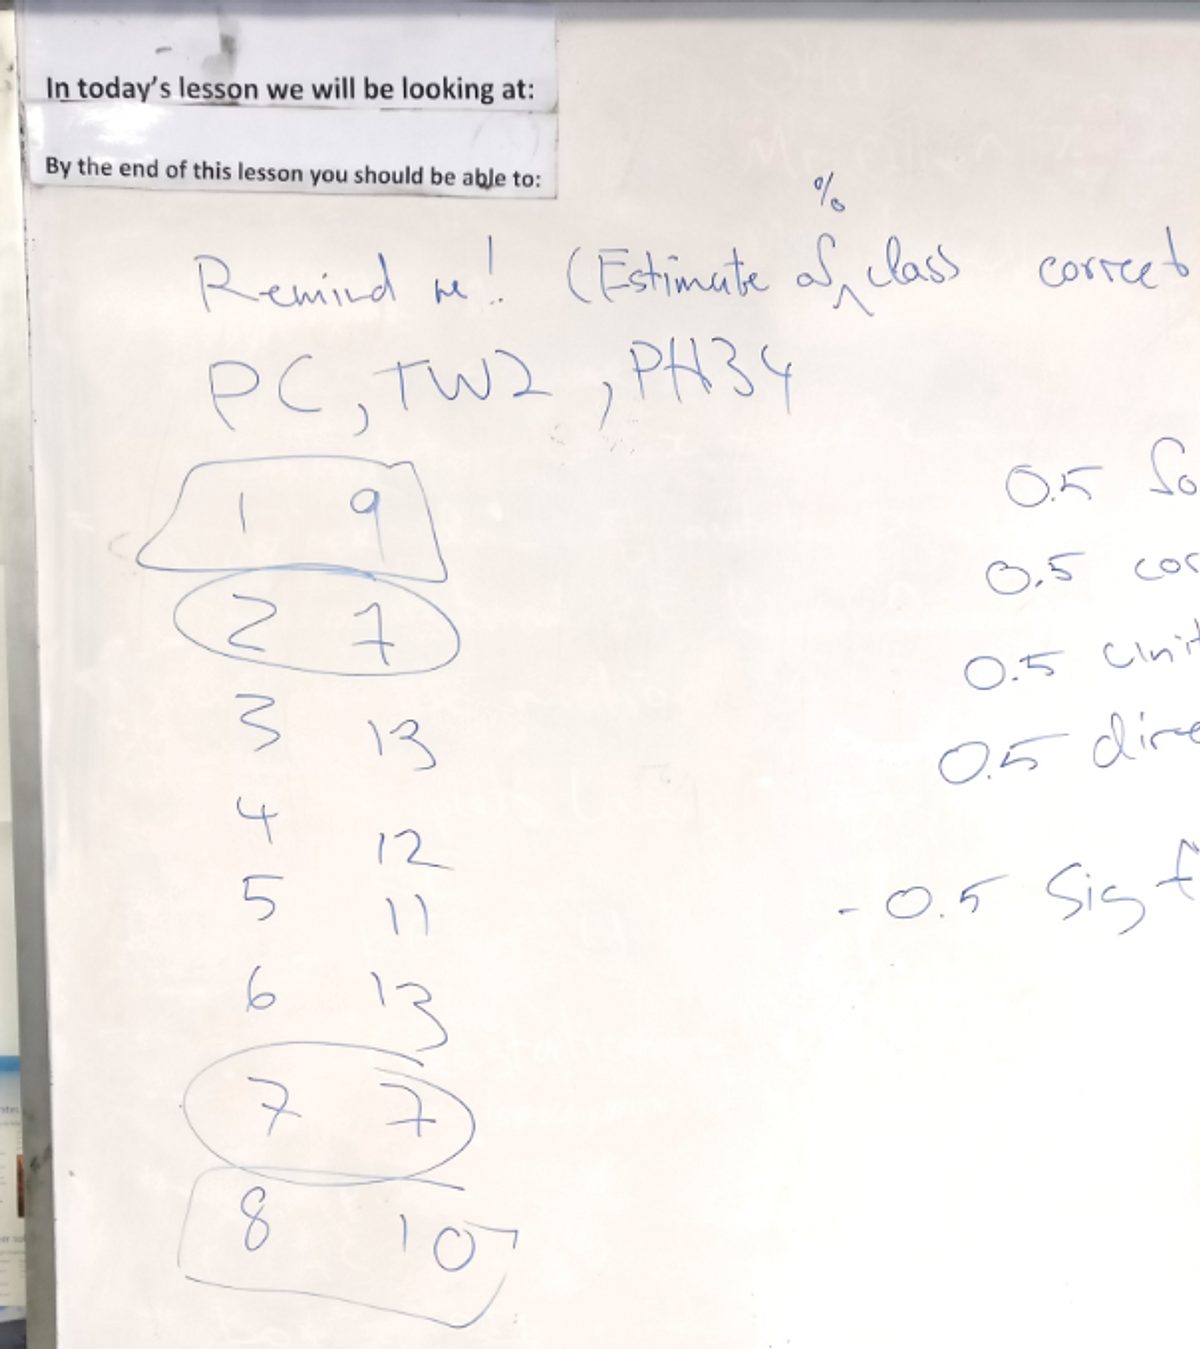 In today's lesson we will be looking at:
By the end of this lesson you should be able to:
%
Remind me! (Estimate of class correct
PC, TW2, PH34
1 9
0.5 So
2 7
0.5 cor
3 13
0.5 unit
0.5 dire
4 12
5 11
- 0.5 Sig f
6 13
7 7
8 10